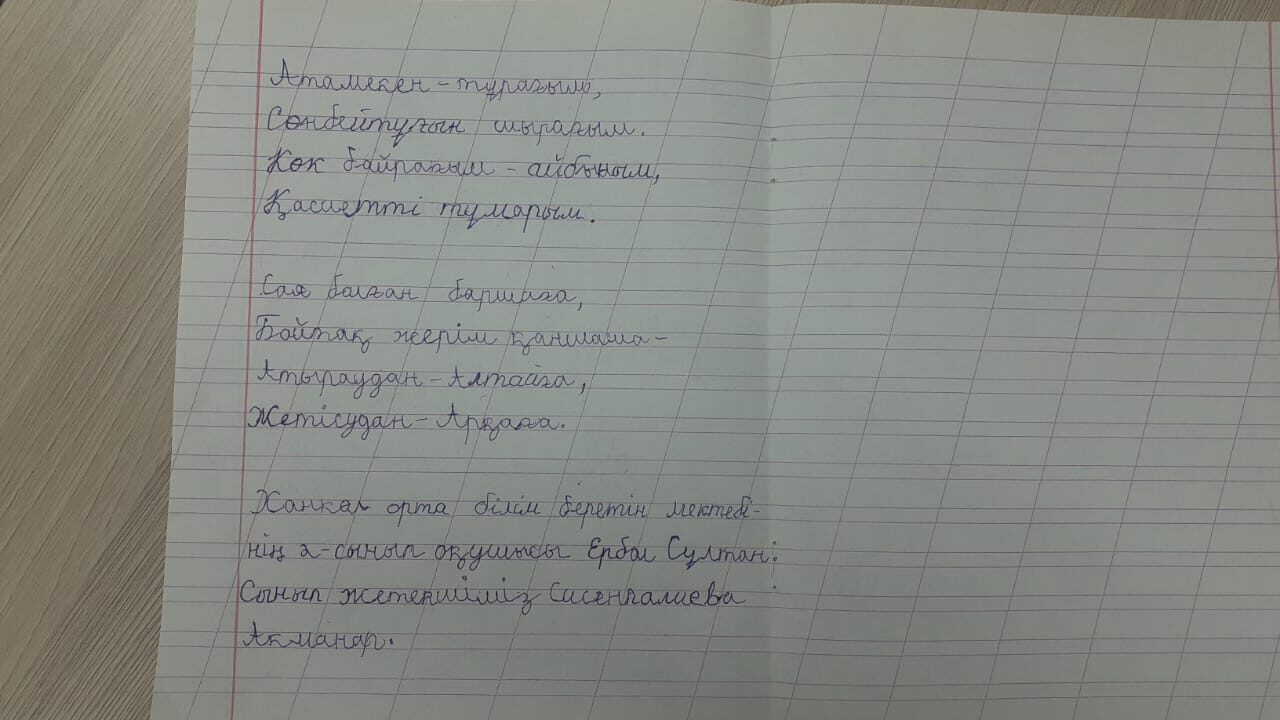 Атамекен - тұрағым,
Сөнбейтұғын шырағым.
Көк байрағым - айбыным,
Қасиетті тұмарым.
Сая болған баршаға,
Байтақ жерім қаншама-
Атыраудан - Алтайға,
Жетісудан - Арқаға.
Ханкөл орта білім беретін мектебі-
нің 2-сынып оқушысы Ербол Сұлтан.
Сынып жетекшіміз Сисенғалиева
Акманар.